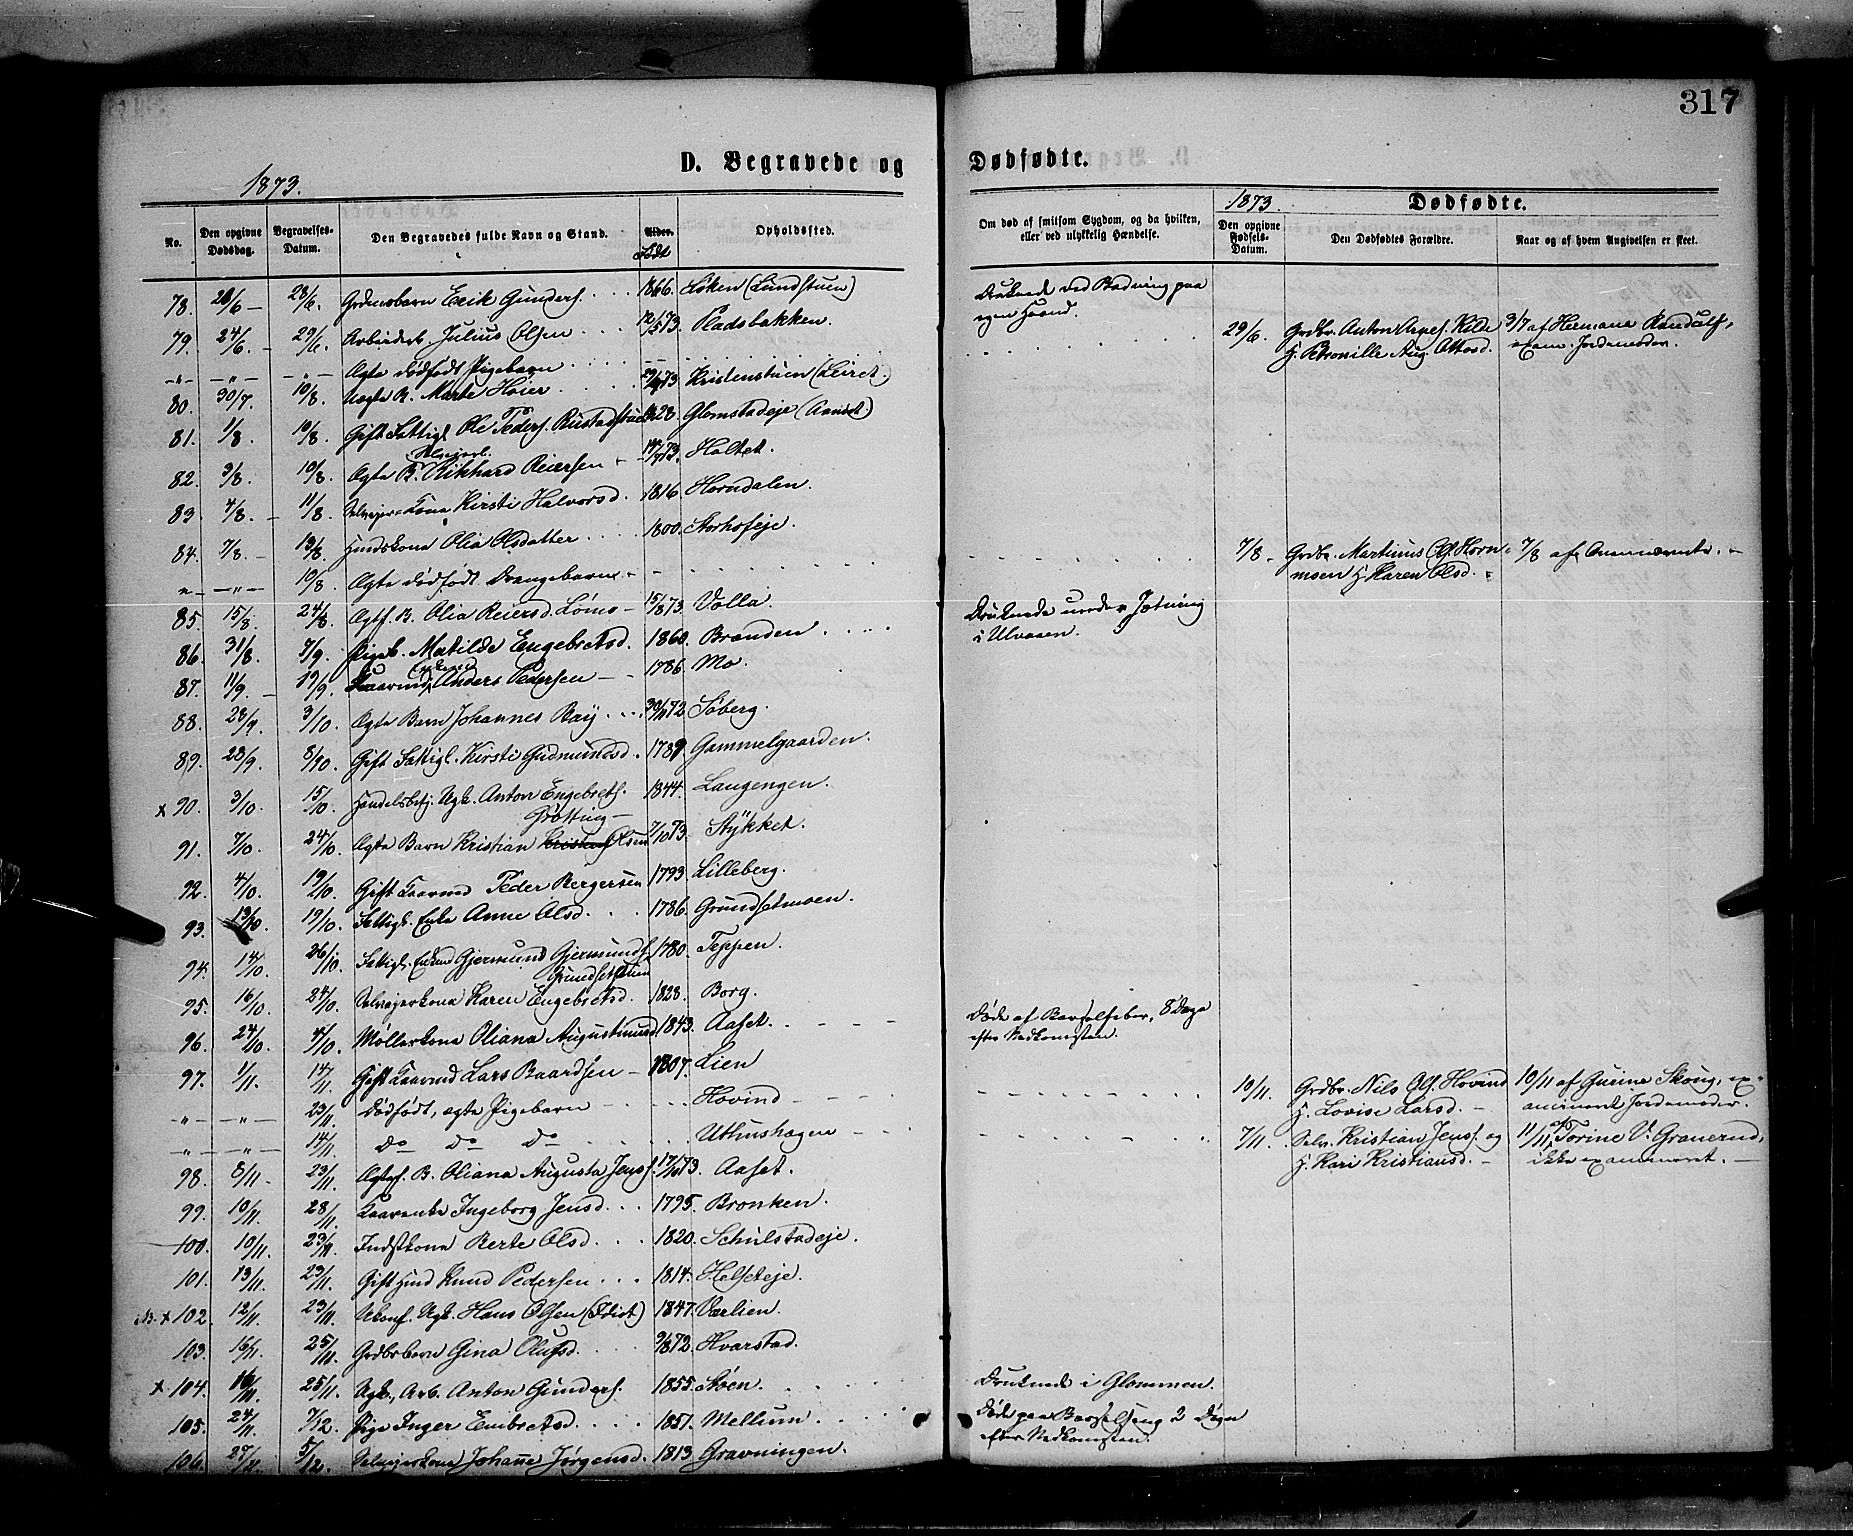 317
D. Begravede og Dødfødte.
1873.
No. Den opgivne Dødsdag. Begravelses-Datum. Den Begravedes fulde Navn og Stand. Alder. Født Opholdssted.
Om død af smitsom Sygdom, og da hvilken, eller ved ulykkelig Hændelse. 1873. Dødfødte.
Den opgivne Fødsels-Datum. Den Dødfødtes Forældre. Naar og af hvem Angivelsen er skeet.
78. 28/6 Erik Gunders. 1866. Løken (Lundstuen) Druknede ved Badning paa egen Haand.
79. 24/6 - 29/6 Julius Olsen 12/5 73. Pladsbakken.
-"- -"- -"- Ægte dødfødt Pigebarn 29/6. Grdbr. Anton Arnes. Kilde H. Petronille Aug. Ottosd. 3/7 af Hermana exam. Jordemoder.
80. 30/7. 10/8. Uægte B. Marte Høier 73 Kristenstuen (Leiret.)
81. 1/8. 10/8. Gift Fattigl. Ole Peders. Rustadstuen 1828. Glomstadeje
82. 3/8. 10/8. Ægte B. Rikhard Reiersen 73. Holtet.
83. 4/8. - 11/8. Selvejer-Kone Kirsti Halvorsd. 1816. Horndalen.
84. 7/8. - 13/8. Husdskone Olia Olsdatter 1800. Storhofeje.
-"- -"- 10/8. Ægte dødfødt Drengebarn - 7/8 - Grdbr. Martinus Ols. Hornmoen H. Karen Olsd. 7/8 af
85. 15/8. 24/8. Ægtf. B. Olia Reiersd. Løms - 15/8 73. Volla.
86. 31/8. 7/9. Pigeb. Matilde Engebretsd. 1860. Brænden. Druknede under Jætning i Ulvaaen.
87. 11/9. - 19/9. Anders Pedersen - 1786. Mo.
88. 28/9. 3/10. Ægte Barn Johannes 72 Søberg.
89. 28/9. 8/10. Gift Fattigl. Kirsti Gudmundsd. 1789 Gammelgaarden.
x 90. 3/10. 15/10. Handelsbetj. Ugk. Anton Engebrets. Grøtting - 1844. Langengen.
91. 7/10. 24/10. Ægte Barn Kristian Olsen 7/10 73. Stykket.
92. 4/10. 19/10. Gift Kaarmd Peder Bergersen 1793 Lilleberg.
93. 13/10. 19/10. Fattigl. Enke Anne Olsd. 1786. Grundsetmoen.
94. 14/10. 26/10. Fattigl. Enkem. Gjermund Gjermunds. Grundsetstuen 1780. Teppen.
95. 16/10. 24/10. Selvejerkone Karen Engebretsd. 1828. Borg.
96. 24/10. 4/10. Møllerkone Oliana Augustinusd. 1843. Aaset. Døde af Barselfeber, 8 Dage efter Nedkomsten.
97. 1/11. 14/11. Gift Kaarmd Lars Baardsen - 1807. Lien
-"- -"- 23/11. Dødfødt, ægte Pigebarn - Hovind 10/11. Grdbr. Nils Ols. Hovind H. Lovise Larsd. - 10/11 af Gurine Skoug, examineret Jordemoder.
-"- -"- 14/11. Do Do Do Uthushagen 7/11. Selv. Kristian Jens. og H. Kari Kristiansd. - 11/11 af Torine V. Graneruud, ikke examineret. -
98. 8/11. 23/11. Ægtef. B. Oliana Augusta Jens. 17/10 73. Aaset.
99. 10/11. 28/11. Kaarenke Ingeborg Jensd. 1795. Bronken.
100. 10/11. 23/11. Indstkone Berte Olsd. 1820. Schulstadeje.
101. 13/11. 23/11. Gift Husd Knud Pedersen 1814. Helseteje.
x 102. 12/11. 23/11. Ukonf. Ugk. Hans Olsen (Idiot) 1847. Værlien.
103. 16/11. 25/11. Grdbrbarn Gina Olufsd. 9/8 72. Hvarstad.
x 104. 16/11. 25/11. Ugk., Arb. Anton Gunders. 1855. Støen. Druknede i Glommen.
105. 24/11. 7/12. Pige Inger Embretsd. 1851. Mellum. Døde paa Barselseng 2 Døgn efter Nedkomsten.
106. 27/11. 5/12. Selvejerkone Johanne Jørgensd. 1813. Gravningen.